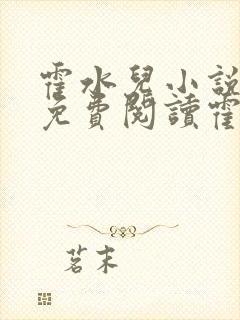 霍水兒小説
免費閱讀霍
茗末